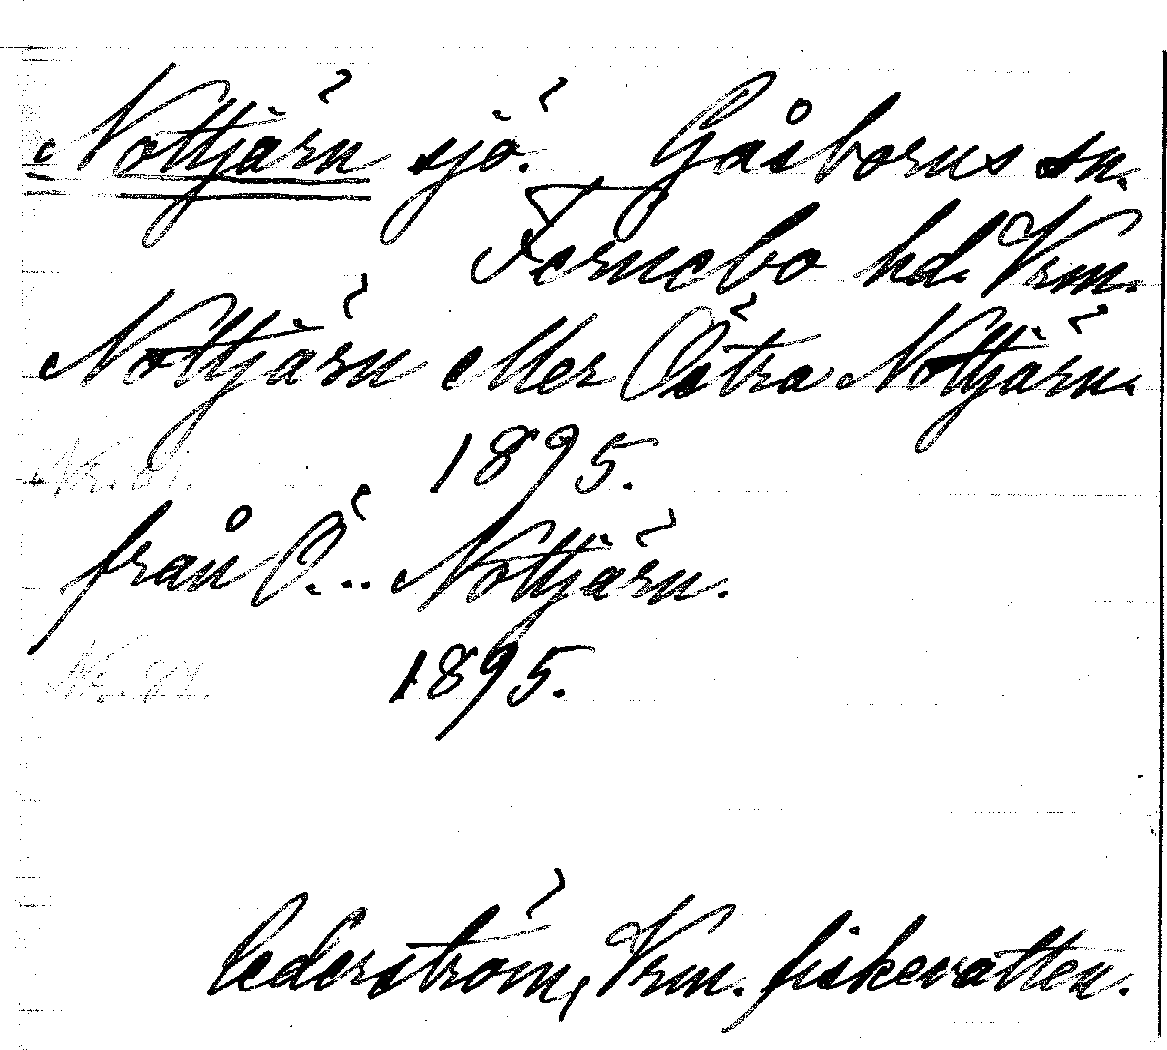 Nottjärn sjö. Gåsborns sn.
Fernebo hd. Vrm.
Nottjärn eller Östra Nottjärn.
1895.
från Ö... Nottjärn.
1895.
Cederström, Vrm. fiskevatten.